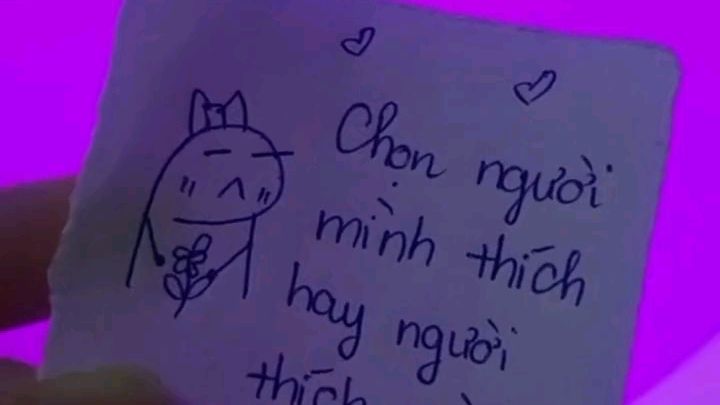 Chọn người
mình thích
hay người
thích